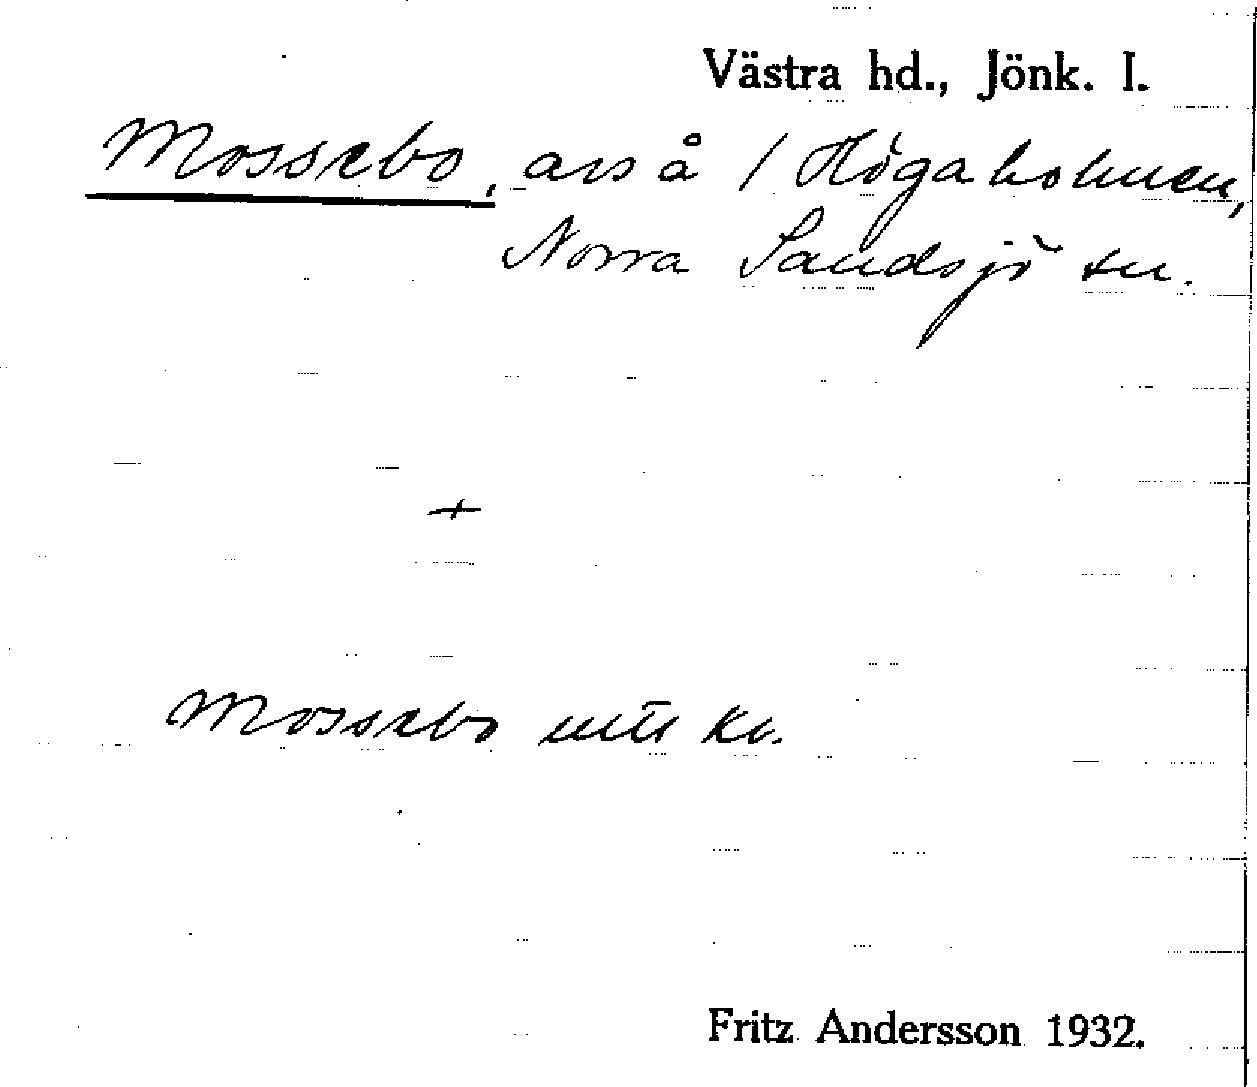 Västra hd., Jönk. l.
Mossebo, avs å / Högaholmen,
Norra Sandsjö sn.
+
Mossebo utti Kv.
Fritz Andersson 1932.